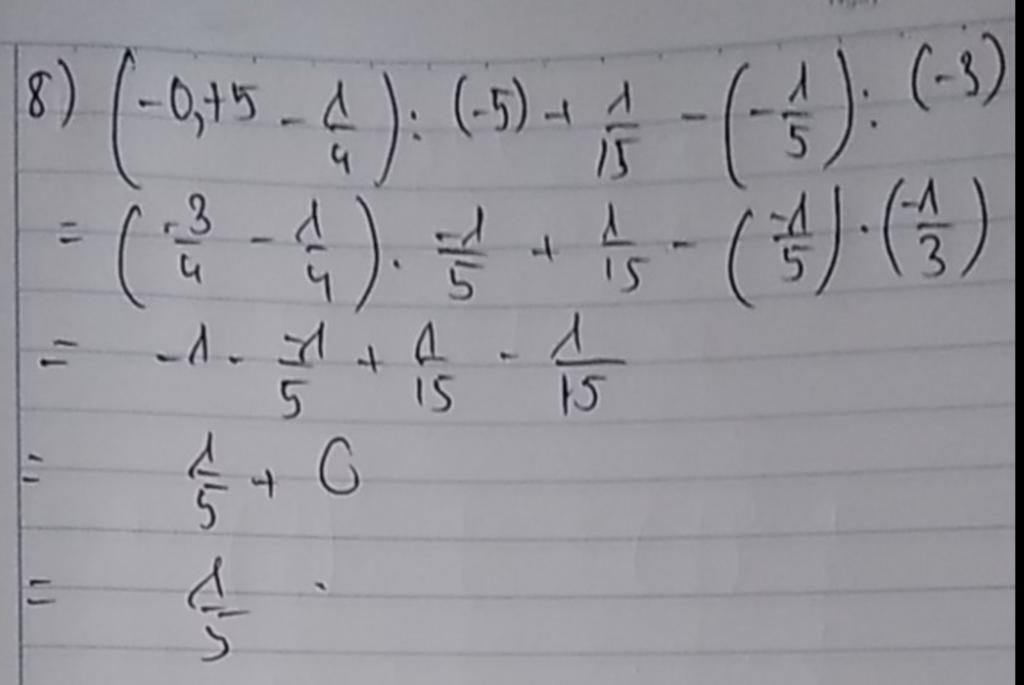 8) (-0,75 - 1/4) : (-5) + 1/15 - (-1/5) : (-3)
= (-3/4 - 1/4) . -1/5 + 1/15 - (-1/5) . (-1/3)
= -1 . -1/5 + 1/15 - 1/15
= 1/5 + 0
= 1/5 .